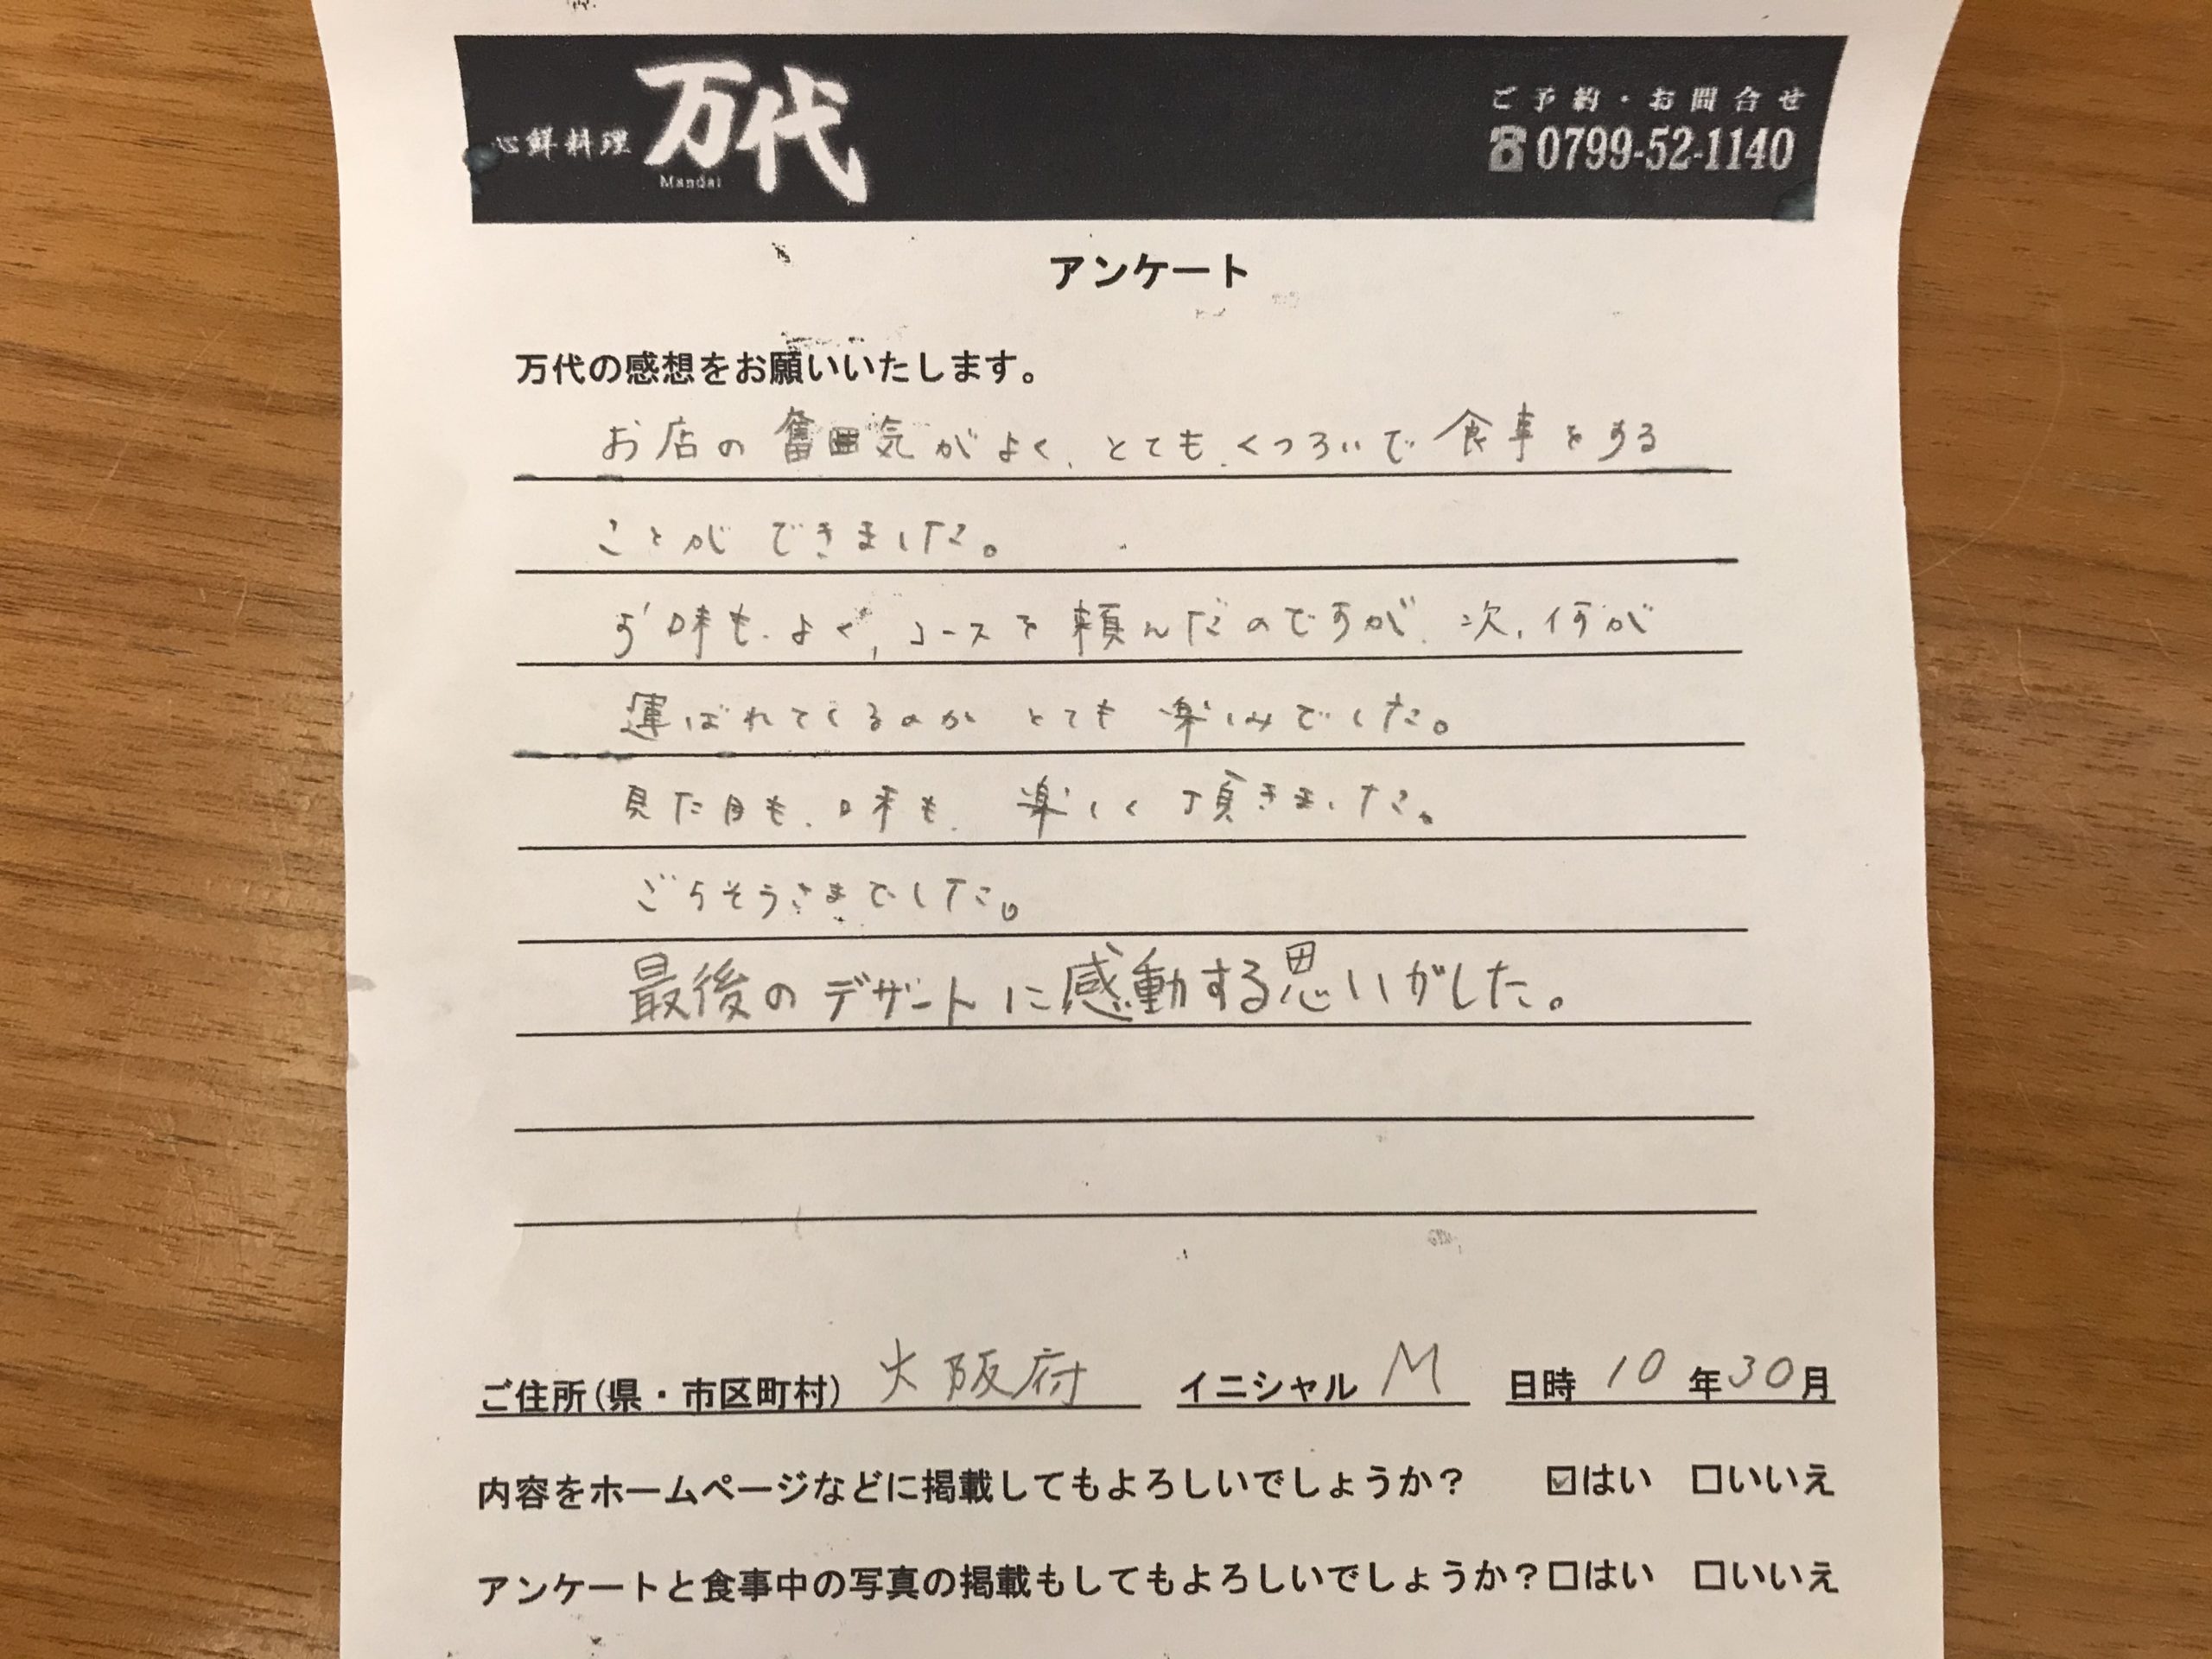 心鮮料理 万代
Mandai
ご予約・お問合せ
☎0799-52-1140
アンケート
万代の感想をお願いいたします。
お店の奮囲気がよく、とても、くつろいで食事をする
ことができました。
お味も、よく、コースを頼んだのですが、次、何が
運ばれてくるのか とても 楽しみでした。
見た目も、味も、楽しく頂きました。
ごちそうさまでした。
最後のデザートに感動する思いがした。
ご住所(県・市区町村) 大阪府 イニシャル M 日時 10 年 30 月
内容をホームページなどに掲載してもよろしいでしょうか? ☑はい □いいえ
アンケートと食事中の写真の掲載もしてもよろしいでしょうか?□はい □いいえ